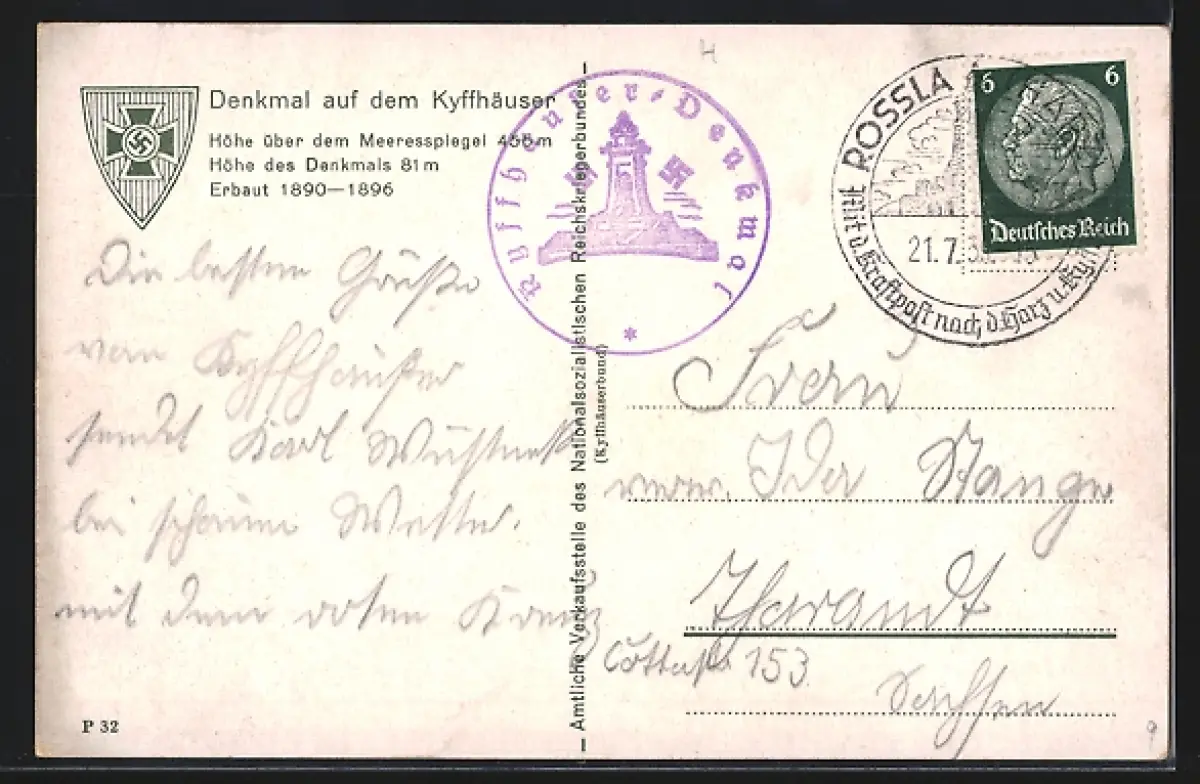 H
Denkmal auf dem Kyffhäuser
Höhe über dem Meeresspiegel 456m
Höhe des Denkmals 81m
Erbaut 1890—1896
Kyffhäuser-Denkmal
*
ROSSLA
21.7.3
Mit d. Kraftpost nach d. Harz u. Kyf
6 6
Deutsches Reich
Die besten Grüße
vom Kyffhäuser
sendet Karl
bei schönem Wetter.
mit dem roten Kreuz
— Amtliche Verkaufsstelle des Nationalsozialistischen Reichskriegerbundes —
(Kyffhäuserbund)
Frau
verw. Ida Stange
Tharandt
Cottastr 153
Sachsen
P 32
9